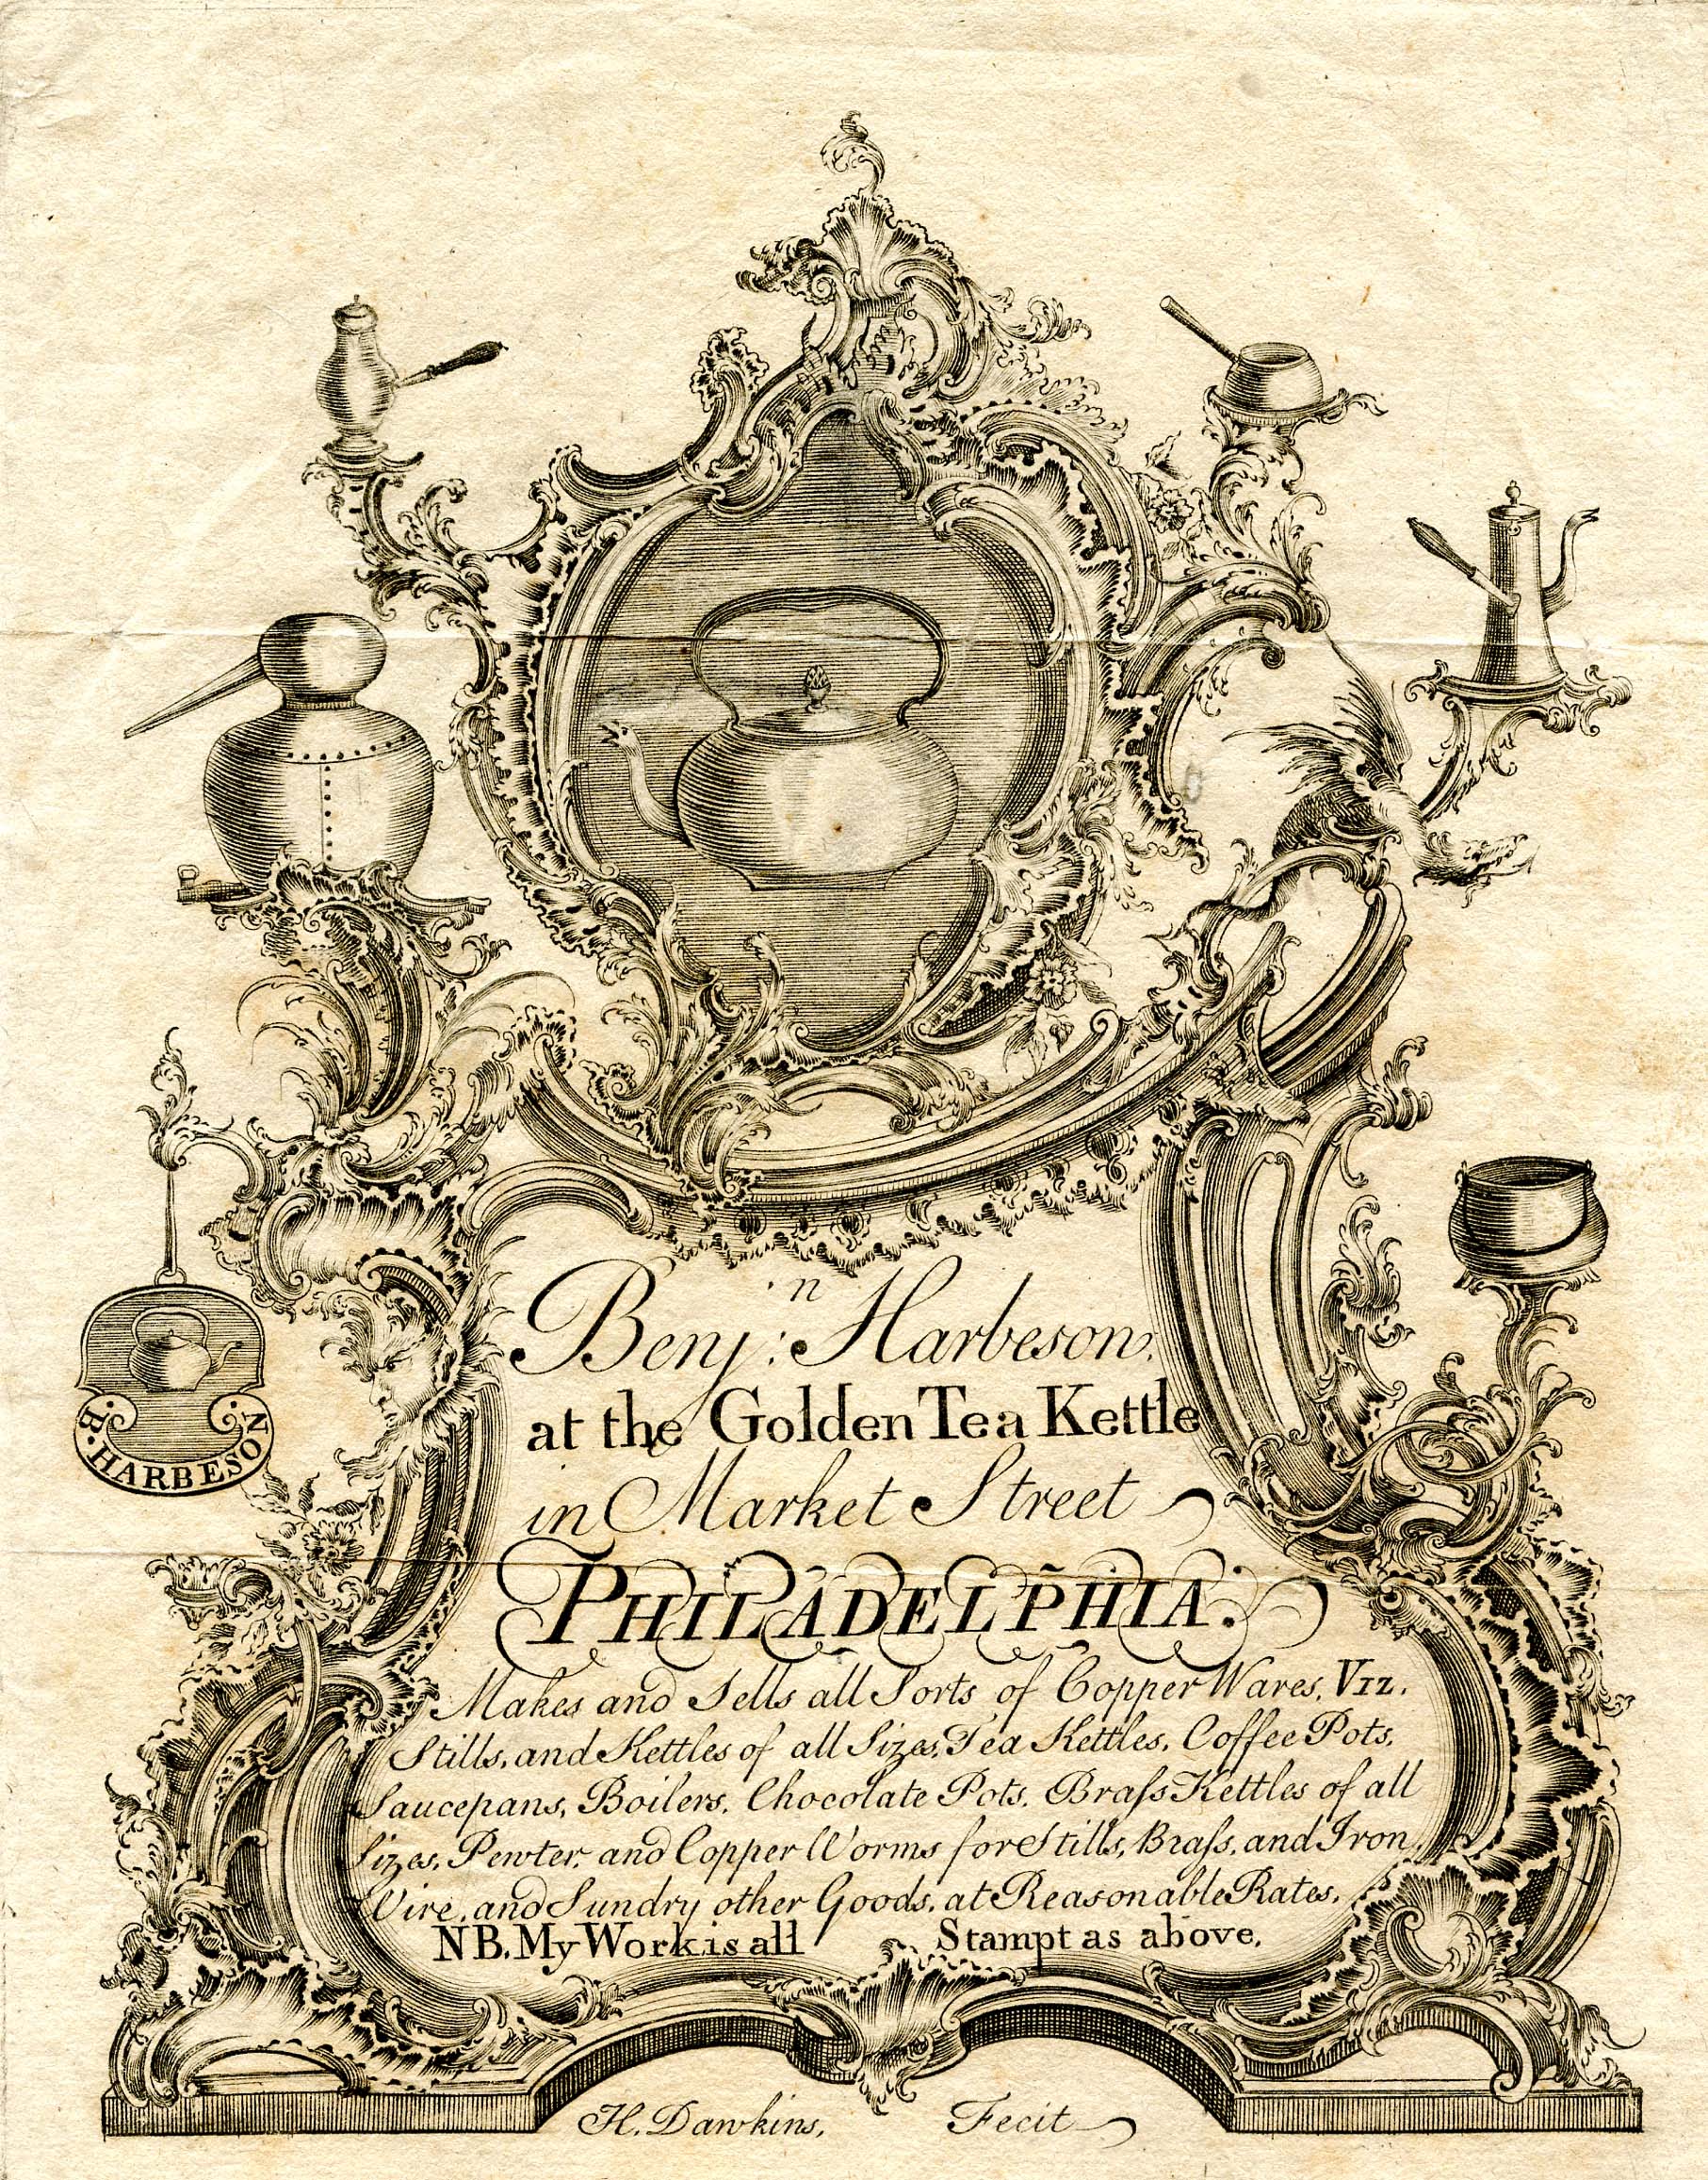 B. HARBESON
Benjⁿ: Harbeson,
at the Golden Tea Kettle
in Market Street
PHILADELPHIA:
Makes and Sells all Sorts of Copper Wares, VIZ.
Stills, and Kettles of all Sizes, Tea Kettles, Coffee Pots,
Saucepans, Boilers, Chocolate Pots, Braſs Kettles of all
Sizes, Pewter, and Copper Worms for Stills, Braſs, and Iron
Wire, and Sundry other Goods, at Reasonable Rates.
NB. My Work is all Stampt as above.
H. Dawkins, Fecit